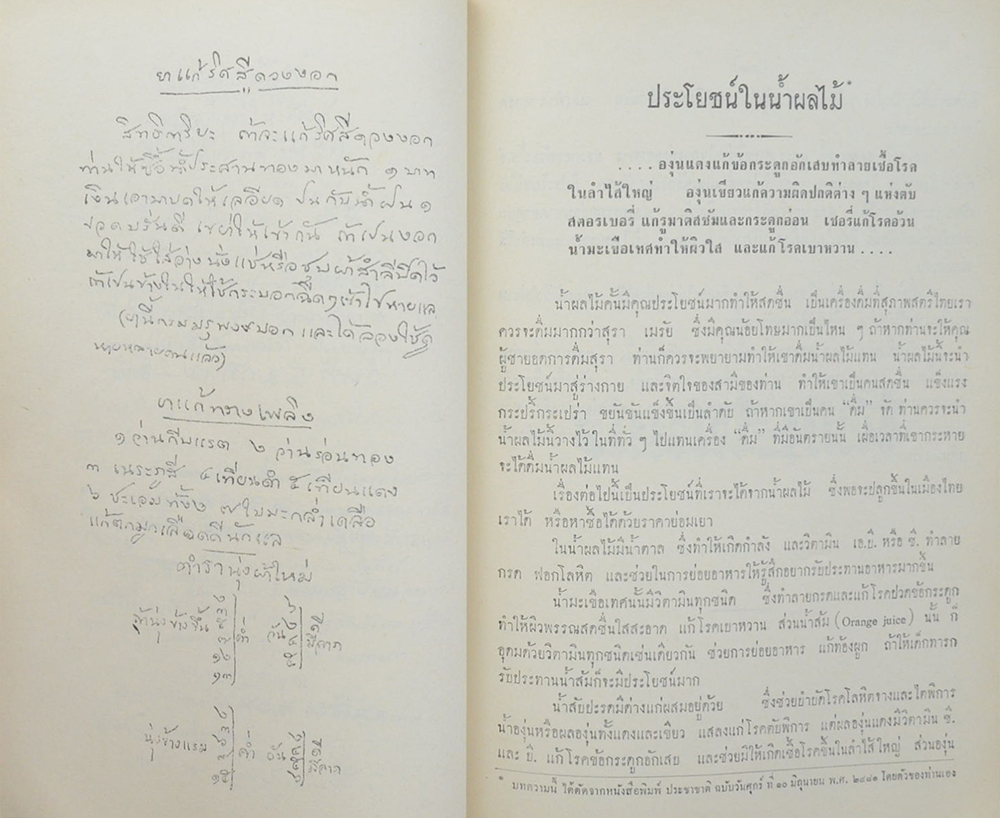 ยาแก้ริศสีดวงงอก
สิทธิการิยะ ถ้าจะแก้ริศสีดวงงอก
ท่านให้ซื้อน้ำประสานทองมาหนัก ๑ บาท
เงินเอามาบดให้เลอียด ปนกับน้ำฝน ๑
ขวดบรั่นดี เขย่าให้เข้ากัน ถ้าเป็นงอก
มาให้ใช้ใส่อ่างนั่งแช่หรือชุบผ้าสำลีปิดไว้
ถ้าเป็นข้างในให้ใช้กระบอกฉีดๆเข้าไปหายแล
ยาแก้ทรางเพลิง
๑ ว่านกีบแรด ๒ ว่านร่อนทอง
๓ เนระภูสี ๔ เทียนดำ ๕ เทียนแดง
๖ ชะเอมทั้ง ๒ ๗ ใบมะกล่ำเครือ
แก้ตกมูกเลือดดีนักแล
ตำรานุ่งผ้าใหม่
ถ้านุ่งข้างขึ้น
ค่ำ
วัน
นุ่งข้างแรม
ค่ำ
วัน
ประโยชน์ในน้ำผลไม้*
. . . . องุ่นแดงแก้ข้อกระดูกอักเสบทำลายเชื้อโรค
ในลำไส้ใหญ่ องุ่นเขียวแก้ความผิดปกติต่าง ๆ แห่งตับ
สตอรเบอรี่ แก้รูมาติสซัมและกระดูกอ่อน เชอรี่แก้โรคอ้วน
น้ำมะเขือเทศทำให้ผิวใส และแก้โรคเบาหวาน . . . .
น้ำผลไม้นั้นมีคุณประโยชน์มากทำให้สดชื่น เป็นเครื่องดื่มที่สุภาพสตรีไทยเรา
ควรจะดื่มมากกว่าสุรา เมรัย ซึ่งมีคุณน้อยโทษมากเป็นไหน ๆ ถ้าหากท่านจะให้คุณ
ผู้ชายอดการดื่มสุรา ท่านก็ควรจะพยายามทำให้เขาดื่มน้ำผลไม้แทน น้ำผลไม้นี้จะนำ
ประโยชน์มาสู่ร่างกาย และจิตใจของสามีของท่าน ทำให้เขาเป็นคนสดชื่น แข็งแรง
กระปรี้กระเปร่า ขยันขันแข็งขึ้นเป็นลำดับ ถ้าหากเขาเป็นคน “ดื่ม” จัด ท่านควรจะนำ
น้ำผลไม้นี้วางไว้ในที่ทั่ว ๆ ไปแทนเครื่อง “ดื่ม” ที่มีอันตรายนั้น เผื่อเวลาที่เขากระหาย
จะได้ดื่มน้ำผลไม้แทน
เรื่องต่อไปนี้เป็นประโยชน์ที่เราจะได้จากน้ำผลไม้ ซึ่งพอจะปลูกขึ้นในเมืองไทย
เราได้ หรือหาซื้อได้ด้วยราคาย่อมเยา
ในน้ำผลไม้มีน้ำตาล ซึ่งทำให้เกิดกำลัง และวิตามิน เอ.บี. หรือ ซี. ทำลาย
กรด ฟอกโลหิต และช่วยในการย่อยอาหารให้รู้สึกอยากรับประทานอาหารมากขึ้น
น้ำมะเขือเทศนั้นมีวิตามินทุกชนิด ซึ่งทำลายกรดและแก้โรคปวดข้อกระดูก
ทำให้ผิวพรรณสดชื่นใสสะอาด แก้โรคเบาหวาน ส่วนน้ำส้ม (Orange juice) นั้น ก็
อุดมด้วยวิตามินทุกชนิดเช่นเดียวกัน ช่วยการย่อยอาหาร แก้ท้องผูก ถ้าให้เด็กทารก
รับประทานน้ำส้มก็จะมีประโยชน์มาก
น้ำสับปะรดมีด่างแก่ผสมอยู่ด้วย ซึ่งช่วยบำบัดโรคโลหิตจางและไตพิการ
น้ำองุ่นหรือผลองุ่นทั้งแดงและเขียว แสลงแก่โรคตับพิการ แต่ผลองุ่นแดงมีวิตามิน ซี.
และ บี. แก้โรคข้อกระดูกอักเสบ และช่วยมิให้เกิดเชื้อโรคขึ้นในลำไส้ใหญ่ ส่วนองุ่น
* บทความนี้ ได้ตัดจากหนังสือพิมพ์ ประชาชาติ ฉบับวันศุกร์ ที่ ๑๐ มิถุนายน พ.ศ. ๒๔๘๑ โดยตัวของท่านเอง